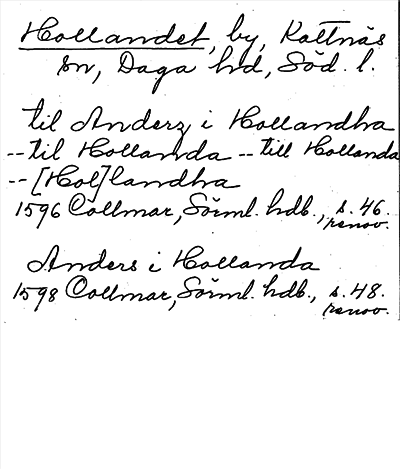 Hollandet, by, Kattnäs
sn, Daga hd, Söd. l.
til Anderz i Hollandha
-- til Hollanda -- till Hollanda
-- [Hol]landha
1596 Collmar, Sörml. hdb., s. 46.
renov.
Anders i Hollanda
1598 Collmar, Sörml. hdb., s. 48.
renov.